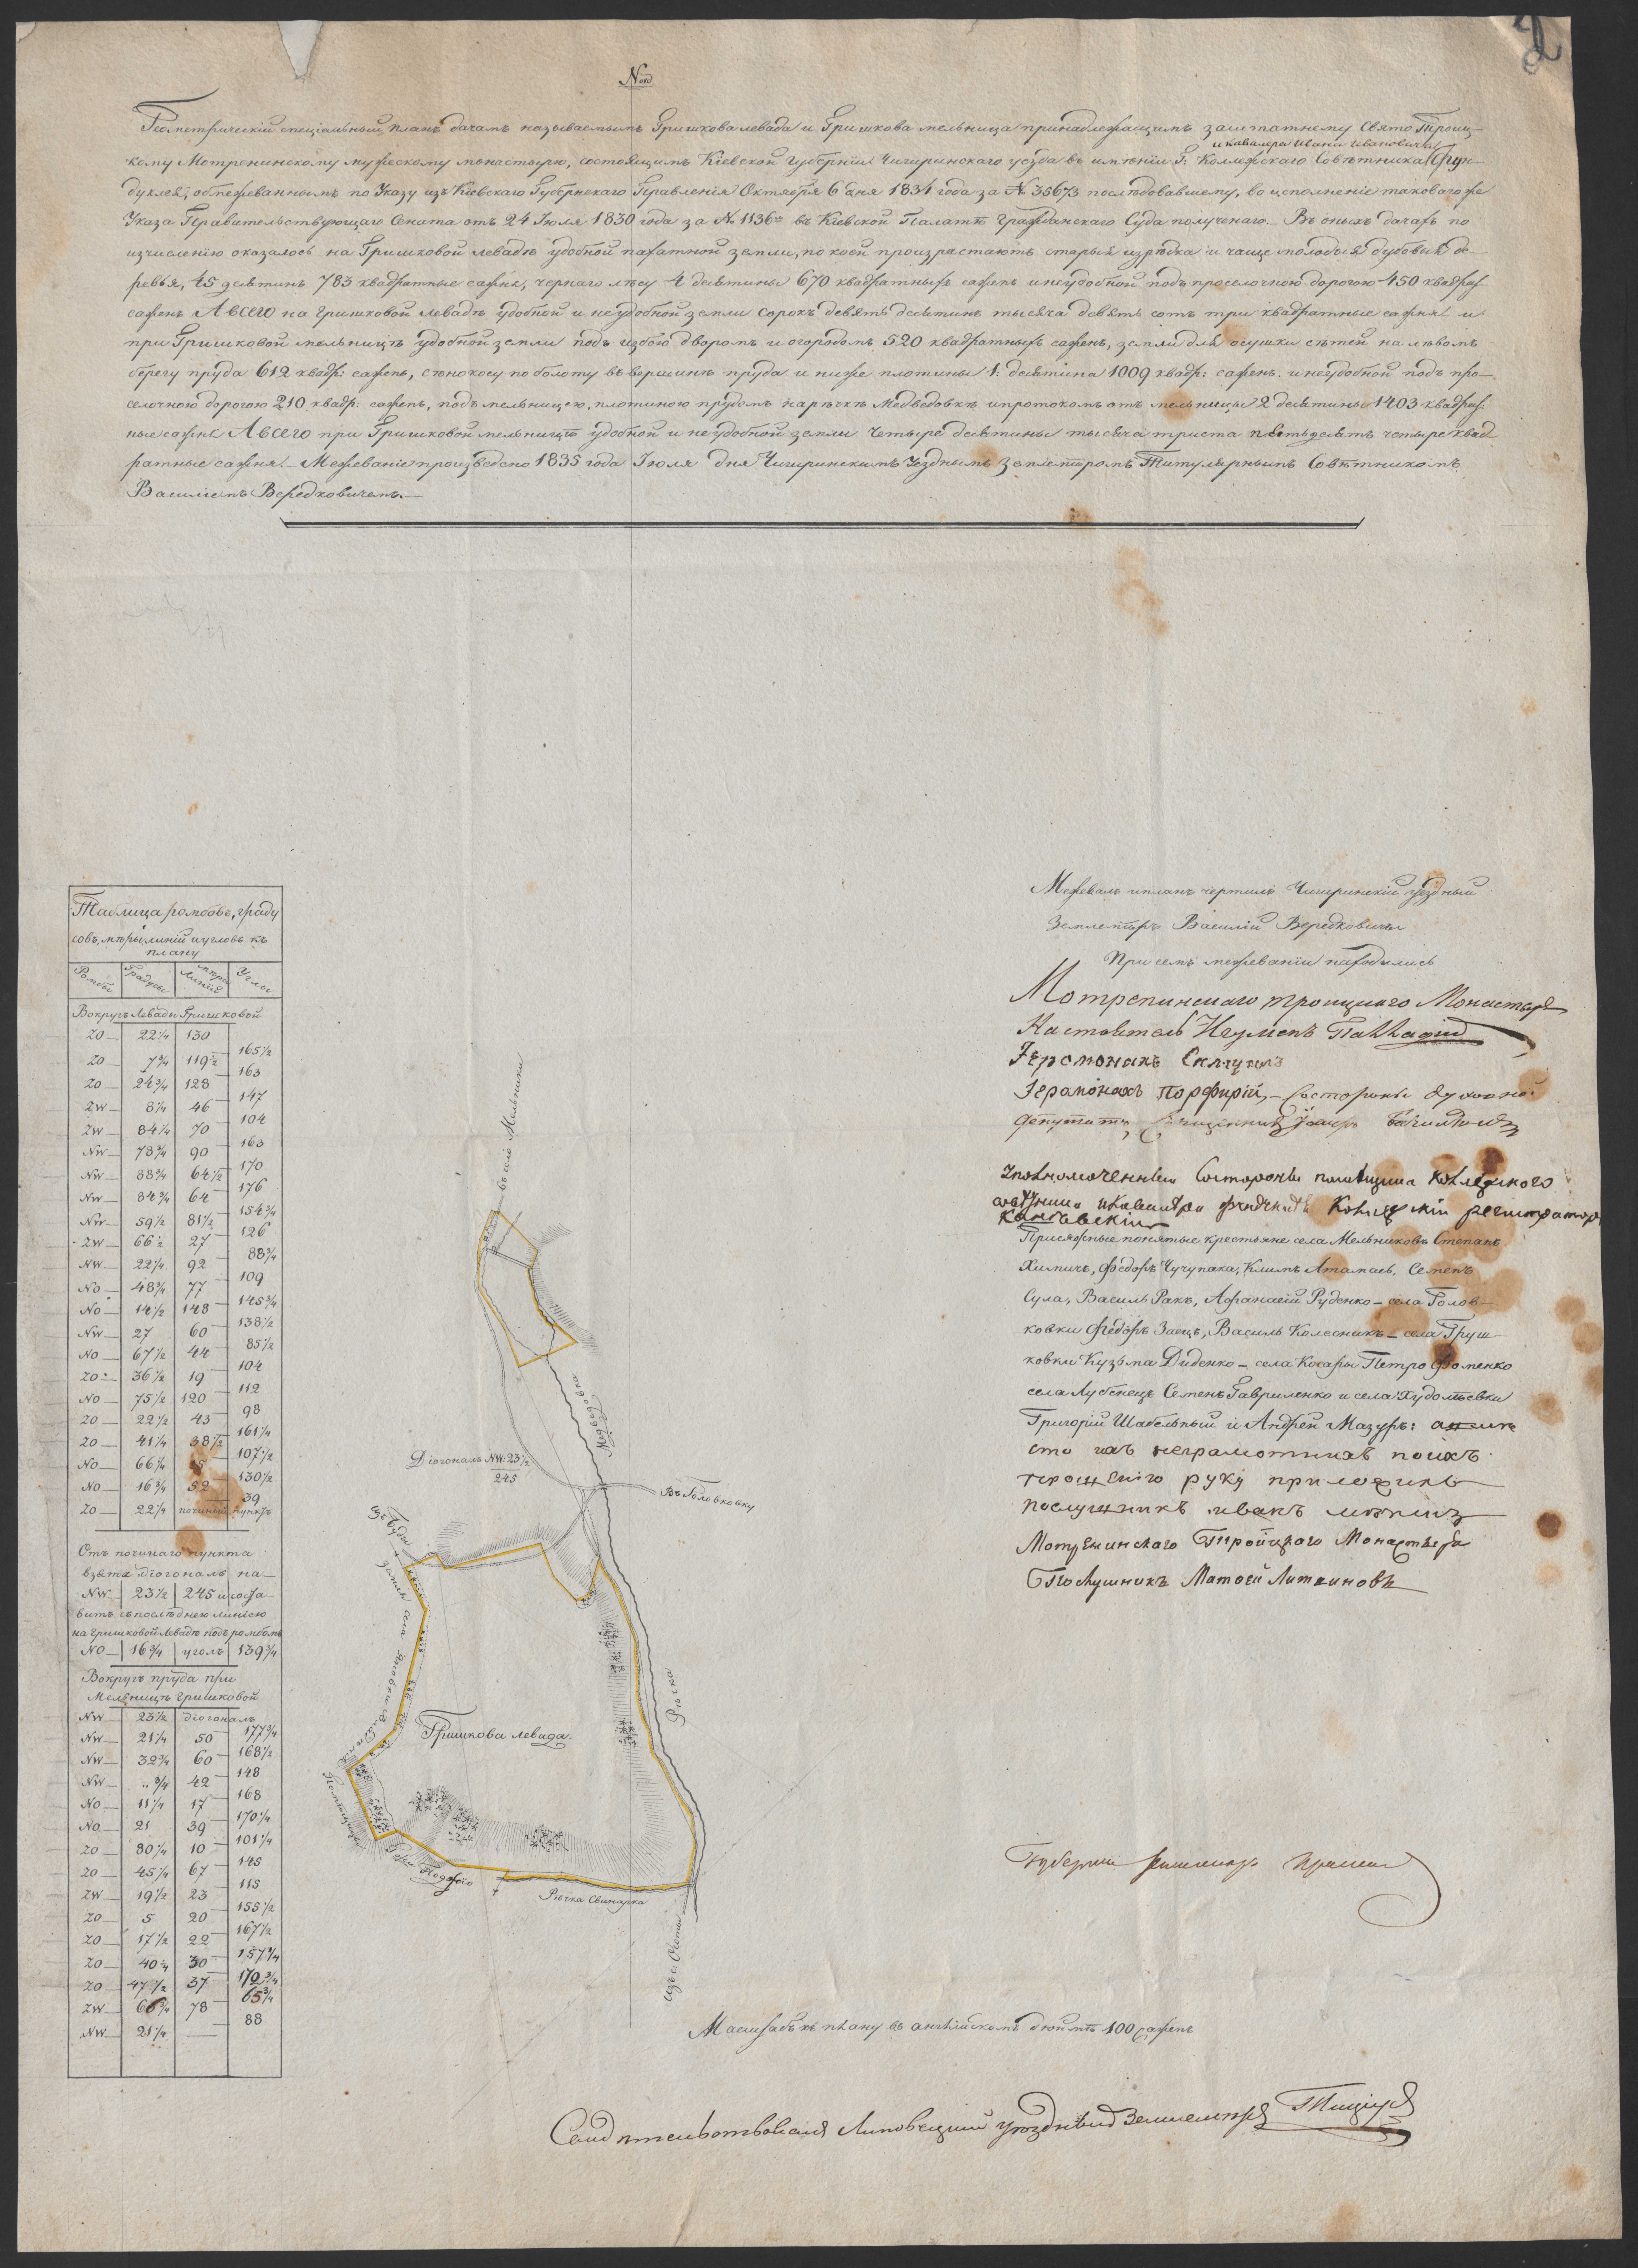 Nord
Геометрическій спеціальный планъ дачамъ называемымъ Гришкова левада и Гришкова мельница принадлежащимъ заштатнему Свято Троиц-
кому Мотренинскому мужескому монастырю, состоящимъ Кіевской Губерніи Чигиринскаго уѣзда въ имѣніи Г: Коллежскаго Совѣтника и кавалера Ивана Ивановича Фун-
дуклея, обмежеваннымъ по Указу изъ Кіевскаго Губернскаго Правленія Октября 6 дня 1834 года за № 35673 послѣдовавшему, во исполненіе таковаго же
Указа Правительствующаго Сената отъ 24 Іюля 1830 года за № 1136мъ въ Кіевской Палатѣ Гражданскаго Суда полученаго. — Въ оныхъ дачахъ по
изчисленію оказалось на Гришковой левадѣ удобной пахатной земли, по коей произрастаютъ старыя изрѣдка и чаще молодыя дубовыя де-
ревья, 45 десятинъ 783 квадратные сажня, чернаго лѣсу 4 десятины 670 квадратныхъ сажень и неудобной подъ проселочною дорогою 450 квадрат
сажень А всего на Гришковой левадѣ удобной и неудобной земли сорокъ девять десятинъ тысяча девять сотъ три квадратные сажня и
при Гришковой мельницѣ удобной земли подъ избою дворомъ и огородомъ 520 квадратныхъ сажень, земли для осушки сѣтей на лѣвомъ
берегу пруда 612 квадр: сажень, сѣнокосу по болоту въ вершинѣ пруда и ниже плотины 1: десятина 1009 квадр: сажень. и неудобной подъ про-
селочною дорогою 210 квадр: сажень, подъ мельницею, плотиною прудомъ на рѣчкѣ Медведовкѣ и протокомъ отъ мельницы 2 десятины 1403 квадрат
ные сажня А всего при Гришковой мельницѣ удобной и неудобной земли четыре десятины тысяча триста пятьдесятъ четыре квад
ратные сажня. — Межеваніе произведено 1835 года Іюля дня Чигиринскимъ Уѣзднымъ Землемѣромъ Титулярнымъ Совѣтникомъ
Василіемъ Вередковичемъ. —
Таблица ромбовъ, граду
совъ, мѣры линій и угловъ къ
плану
Ромбы Градусы мѣра Линій Углы
Вокругъ Левады Гришковой
ZO 22 1/4 130
165 1/2
ZO 7 3/4 119 1/2
163
ZO 24 3/4 128
147
ZW 8 1/4 46
104
ZW 84 1/4 70
163
NW 78 3/4 90
170
NW 88 3/4 64 1/2
176
NW 84 3/4 64
154 3/4
NW 59 1/2 81 1/2
126
ZW 66 1/2 27
88 3/4
NW 22 1/4 92
109
NO 48 3/4 77
145 3/4
NO 14 1/2 148
138 1/2
NW 27 60
85 1/2
NO 67 1/2 44
104
ZO 36 1/2 19
112
NO 75 1/2 120
98
ZO 22 1/2 43
161 1/4
ZO 41 1/4 38 1/2
107 1/2
NO 66 1/4
130 1/2
NO 16 3/4 52
39
ZO 22 1/4 починый пунктъ
Отъ починаго пункта
взята діогональ на
NW 23 1/2 245 и соста-
витъ съ послѣднею линіею
на Гришковой левадѣ подъ ромбомъ
NO 16 3/4 уголъ 139 3/4
Вокругъ пруда при
Мельницѣ Гришковой
NW 23 1/2 діогональ
177 3/4
NW 21 1/4 50
168 1/2
NW 32 3/4 60
148
NW „ 3/4 42
168
NO 11 1/4 17
170 1/4
NO 21 39
101 1/4
ZO 80 1/4 10
145
ZO 45 1/4 67
115
ZW 19 1/2 23
155 1/2
ZO 5 20
167 1/2
ZO 17 1/2 22
157 3/4
ZO 40 1/4 30
170 3/4
ZO 47 1/2 37
65 3/4
ZW 66 3/4 78
88
NW 21 1/4
въ село Мельники
Медведовка
Діогональ NW: 23 1/2
245
Въ Головковку
Гришкова левада.
Рѣчка
Рѣчка Свинарка
Межевалъ и планъ чертилъ Чигиринскій уѣздный
Землемѣръ Василій Вередковичъ
При семъ межеваніи находились
Мотренинскаго троицкаго Монастыря
Настоятель Игуменъ Палладій
Іеромонахъ
Іеромонахъ Порфирій, — Со стороны духовной
депутатъ
уполномоченный Состороны помещика Колежского
советника и кавалера Фундуклея Колежскій регистраторъ
Каневскій
Присяжные понятые крестьяне села Мельниковъ Степанъ
Химичъ, Федоръ Чучупака, Климъ Атамась, Семенъ
Сула, Василь Ракъ, Афанасій Руденко — села Голов-
ковки Федоръ Заецъ, Василь Колесникъ — села Груш-
ковки Кузьма Диденко — села Косары Петро Фоменко
села Лубенецъ Семенъ Гавриленко и села Худолѣевки
Григорій Шабельный и Андрей Мазуръ: а вмѣ
сто ихъ неграмотнихъ поихъ
прошенію руку приложилъ
послушникъ иванъ
Мотренинскаго Тройцкого Монастыря
Послушникъ Матвей Литвиновъ
Масштабъ къ плану въ англійскомъ дюймѣ 100 сажень
Свидѣтельствовалъ Липовецкій уѣздный Землемѣръ